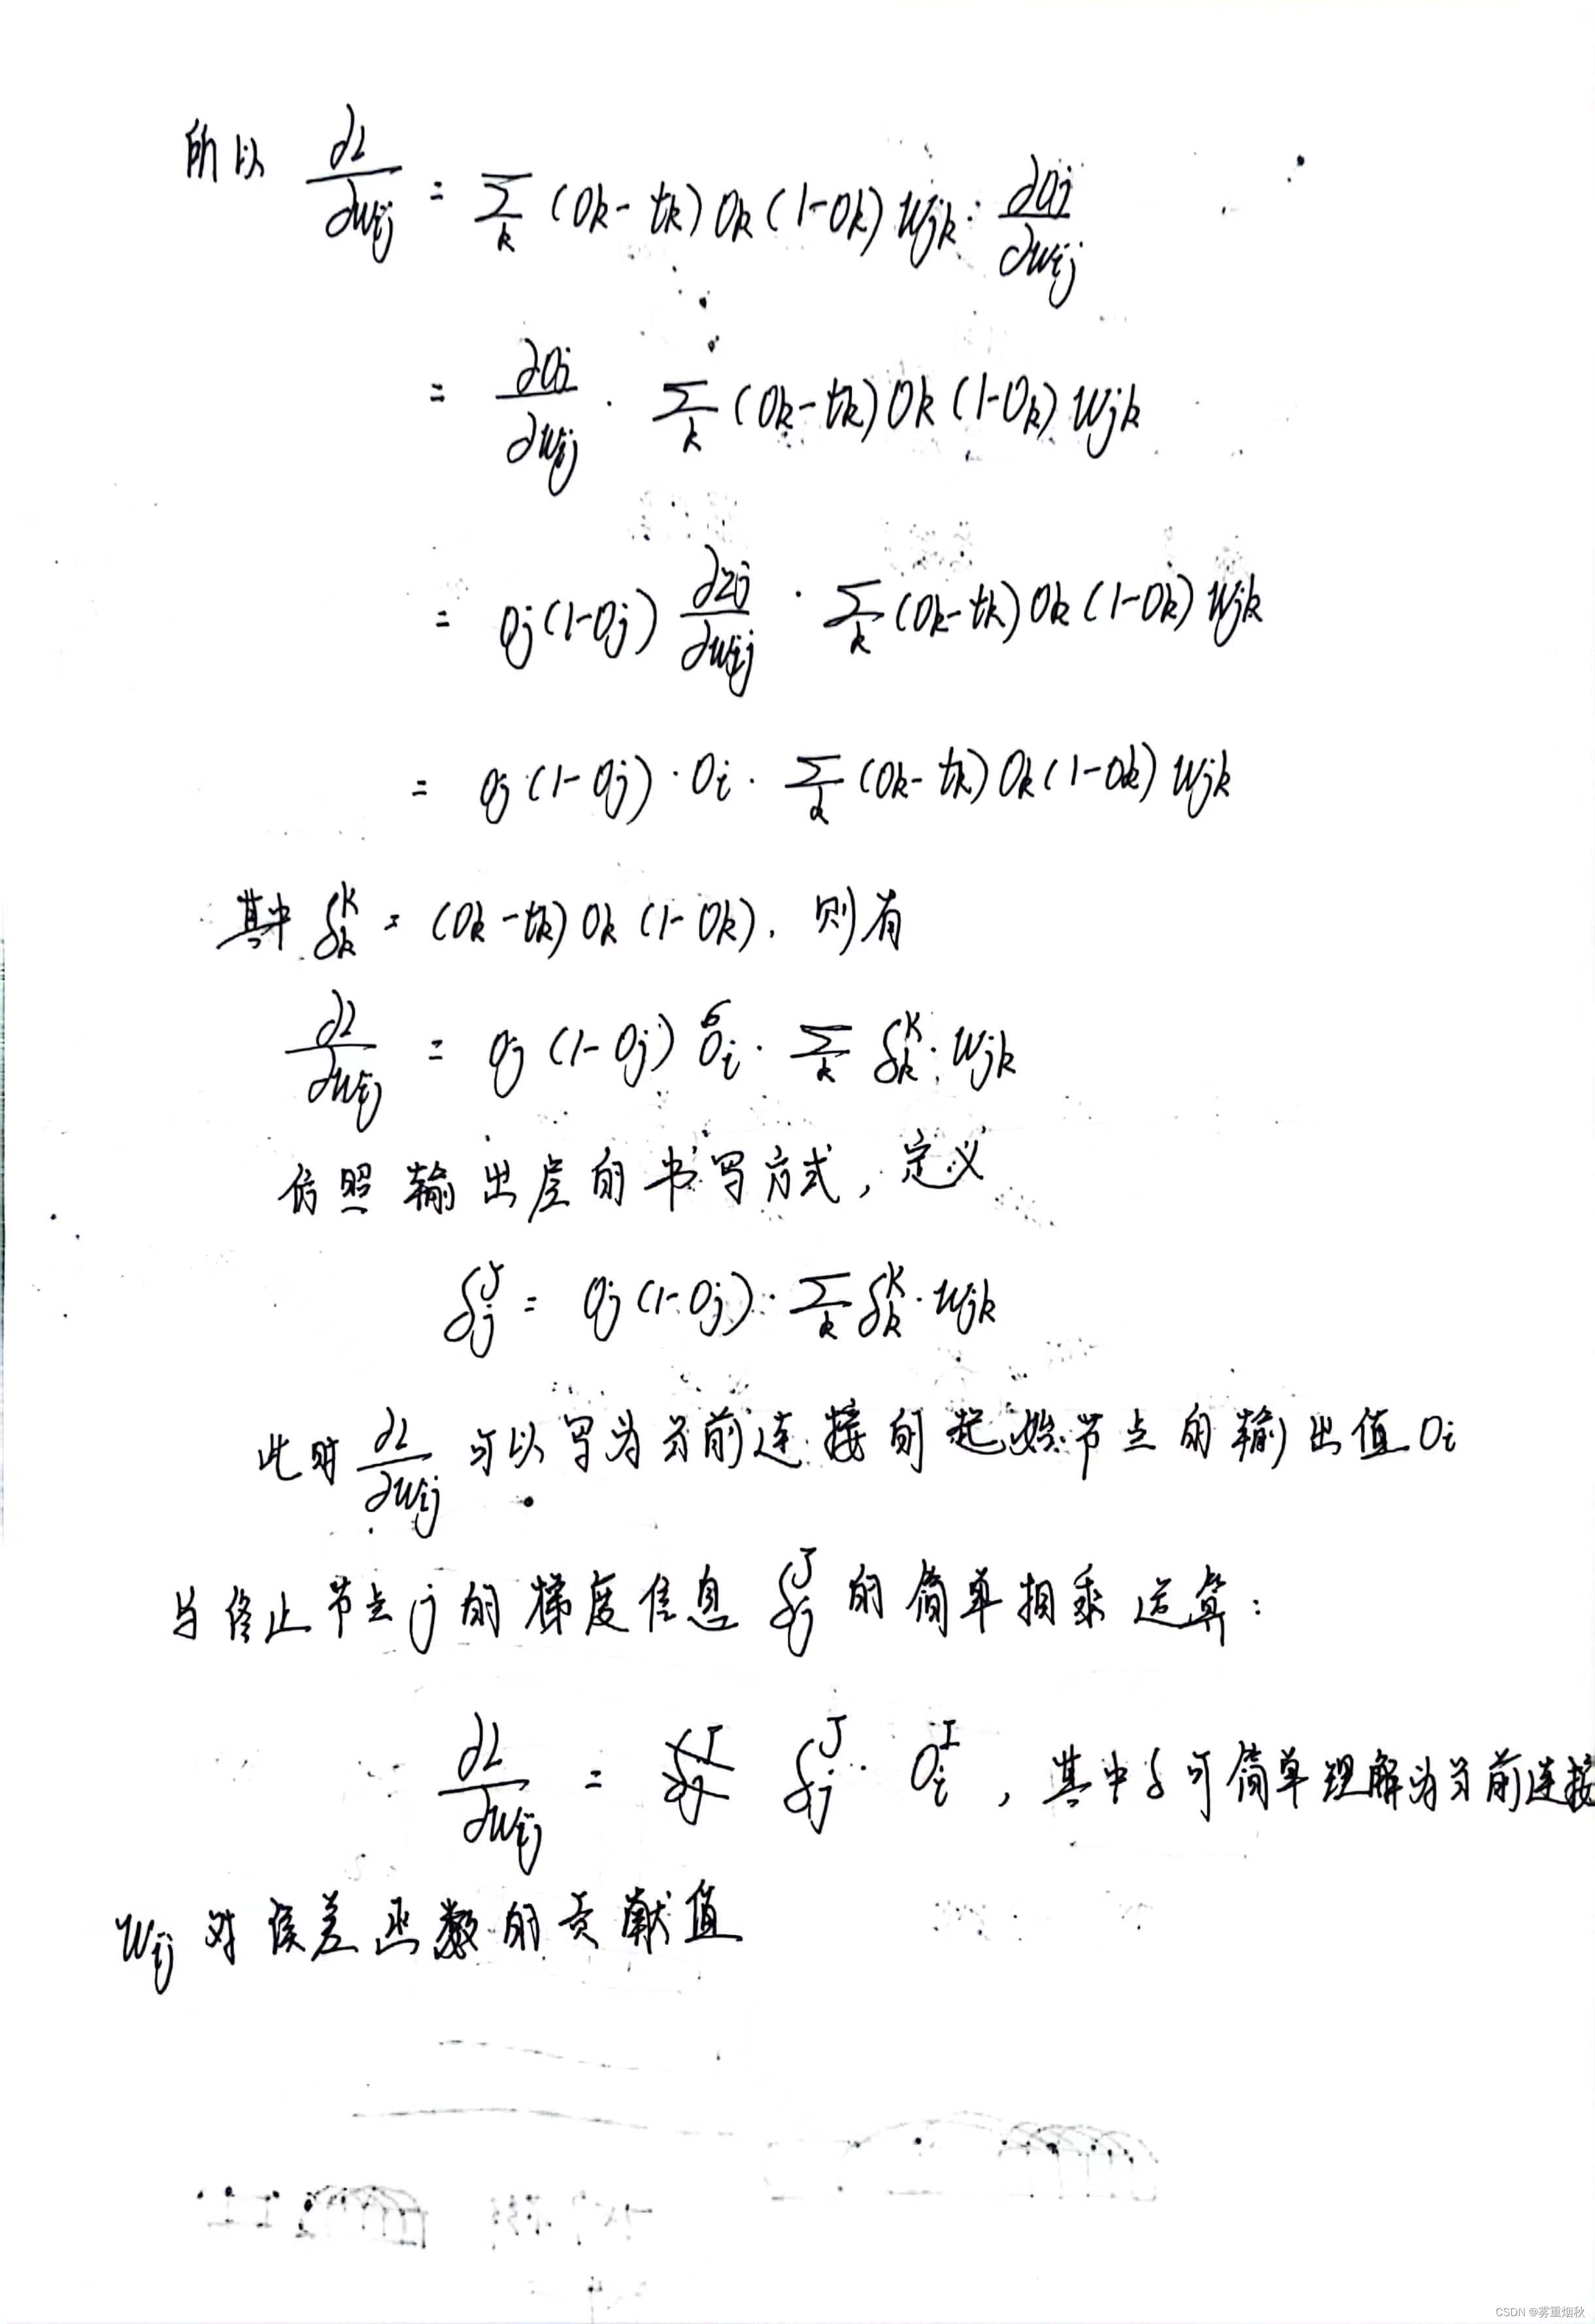 所以 ∂L/∂w_ij = Σ_k (O_k - t_k) O_k (1 - O_k) w_jk · ∂O_j/∂w_ij
= ∂O_j/∂w_ij · Σ_k (O_k - t_k) O_k (1 - O_k) w_jk
= O_j (1 - O_j) ∂z_j/∂w_ij · Σ_k (O_k - t_k) O_k (1 - O_k) w_jk
= O_j (1 - O_j) · O_i · Σ_k (O_k - t_k) O_k (1 - O_k) w_jk
其中 δ_k^K = (O_k - t_k) O_k (1 - O_k), 则有
∂L/∂w_ij = O_j (1 - O_j) O_i · Σ_k δ_k^K · w_jk
仿照输出层的书写方式, 定义
δ_j^J = O_j (1 - O_j) · Σ_k δ_k^K · w_jk
此时 ∂L/∂w_ij 可以写为当前连接的起始节点的输出值 O_i
与终止节点 j 的梯度信息 δ_j^J 的简单相乘运算:
∂L/∂w_ij = δ_j^J · O_i^I , 其中 δ 可简单理解为当前连接
w_ij 对误差函数的贡献值
CSDN @雾重烟秋